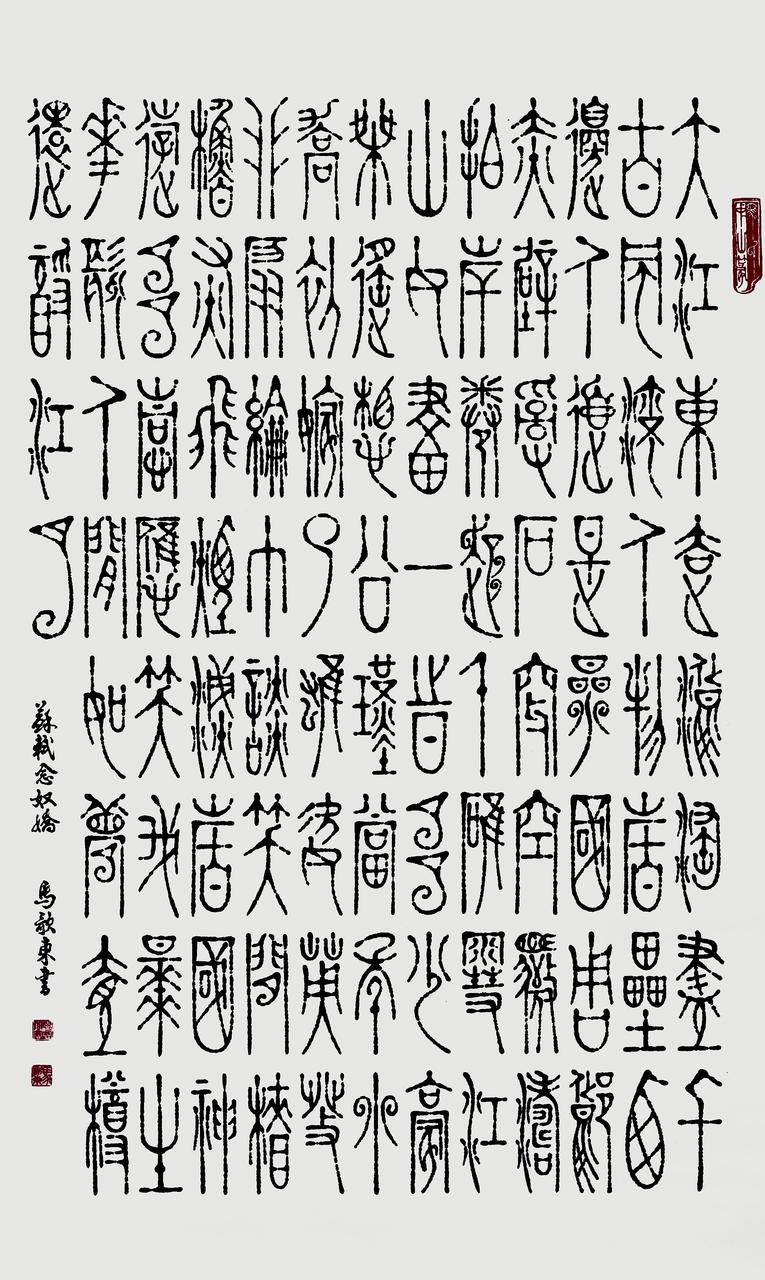 大江東去浪淘盡千
古風流人物故壘西
邊人道是三國周郎
赤壁亂石穿空驚濤
拍岸卷起千堆雪江
山如畫一時多少豪
傑遙想公瑾當年小
喬初嫁了雄姿英發
羽扇綸巾談笑間檣
櫓灰飛煙滅故國神
遊多情應笑我早生
華髮人間如夢壹樽
還酹江月
蘇軾念奴嬌 馬歌東書